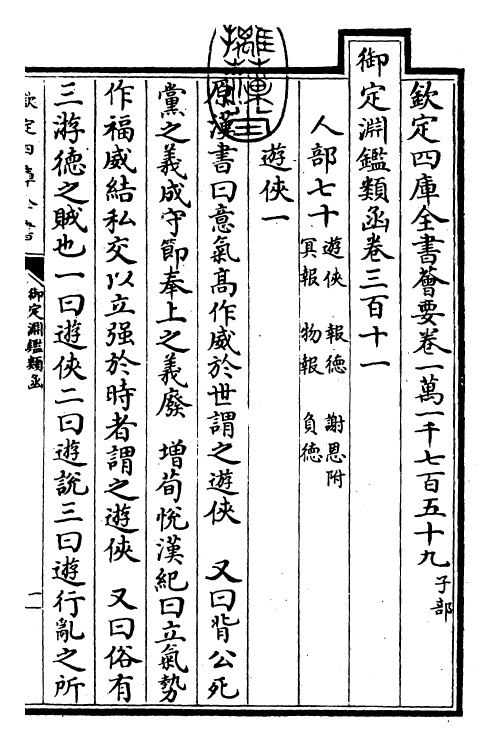 欽定四庫全書薈要卷一萬一千七百五十九子部
御定淵鑑類函卷三百十一
人部七十遊俠 報德 謝恩附
冥報 物報 負德
遊俠一
原漢書曰意氣高作威於世謂之遊俠 又曰背公死
黨之義成守節奉上之義廢 增荀悅漢紀曰立氣勢
作福威結私交以立强於時者謂之遊俠 又曰俗有
三游德之賊也一曰遊俠二曰遊說三曰遊行亂之所
欽定四庫全書
御定淵鑑類函
一